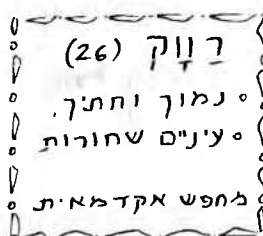 רַווָק (26)
• נמוך וחתיך.
• עיניים שחורות
מחפש אקדמאית